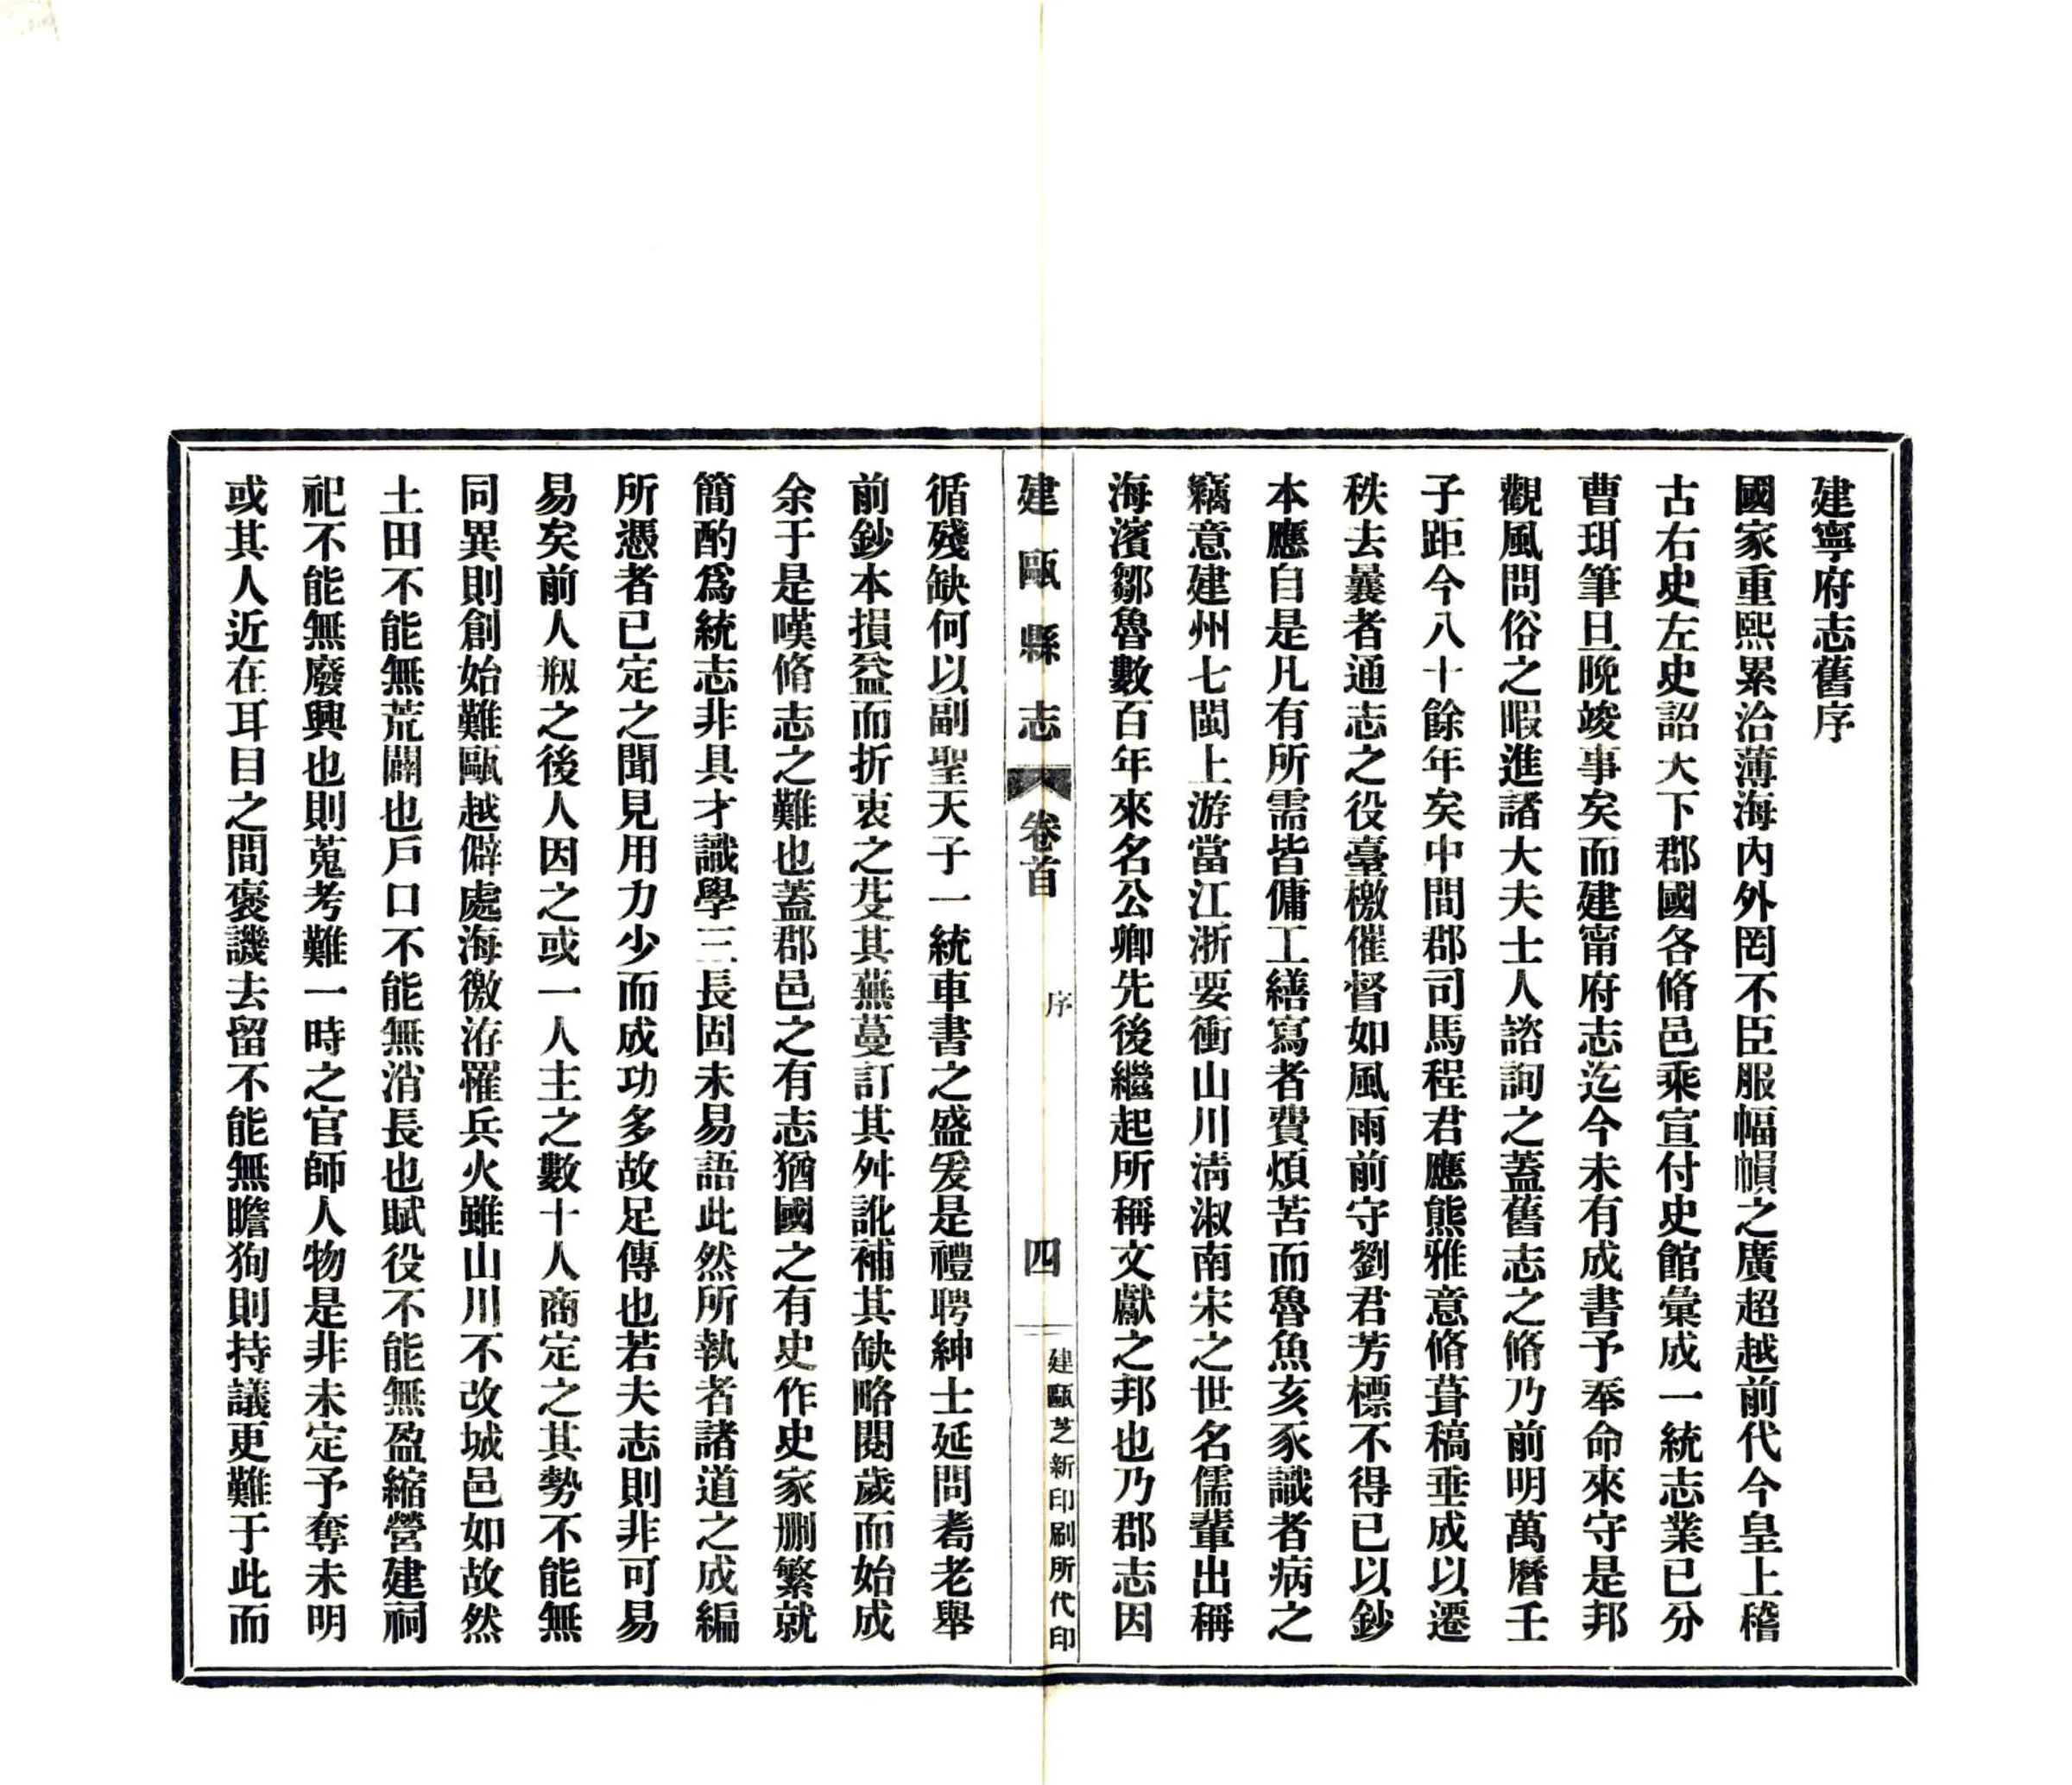 建寧府志舊序
國家重熙累洽薄海內外罔不臣服幅幀之廣超越前代今皇上稽
古右史左史詔大下郡國各脩邑乘宣付史館彙成一統志業已分
曹珥筆旦晚竣事矣而建甯府志迄今未有成書予奉命來守是邦
觀風問俗之暇進諸大夫士人諮詢之蓋舊志之脩乃前明萬曆壬
子距今八十餘年矣中間郡司馬程君應熊雅意脩葺稿垂成以遷
秩去曩者通志之役臺檄催督如風雨前守劉君芳標不得已以鈔
本應自是凡有所需皆傭工繕寫者費煩苦而魯魚亥豕識者病之
竊意建州七閩上游當江浙要衝山川淸淑南宋之世名儒輩出稱
海濱鄒魯數百年來名公卿先後繼起所稱文獻之邦也乃郡志因
建甌縣志 卷首
序
四
建甌芝新印刷所代印
循殘缺何以副聖天子一統車書之盛爰是禮聘紳士延問耇老舉
前鈔本損益而折衷之芟其蕪蔓訂其舛訛補其缺略閱歲而始成
余于是嘆脩志之難也蓋郡邑之有志猶國之有史作史家刪繁就
簡酌爲統志非具才識學三長固未易語此然所執者諸道之成編
所憑者已定之聞見用力少而成功多故足傳也若夫志則非可易
易矣前人剏之後人因之或一人主之數十人商定之其勢不能無
同異則創始難甌越僻處海徼洊罹兵火雖山川不改城邑如故然
土田不能無荒闢也戶口不能無消長也賦役不能無盈縮營建祠
祀不能無廢興也則蒐考難一時之官師人物是非未定予奪未明
或其人近在耳目之間褒譏去留不能無瞻狥則持議更難于此而